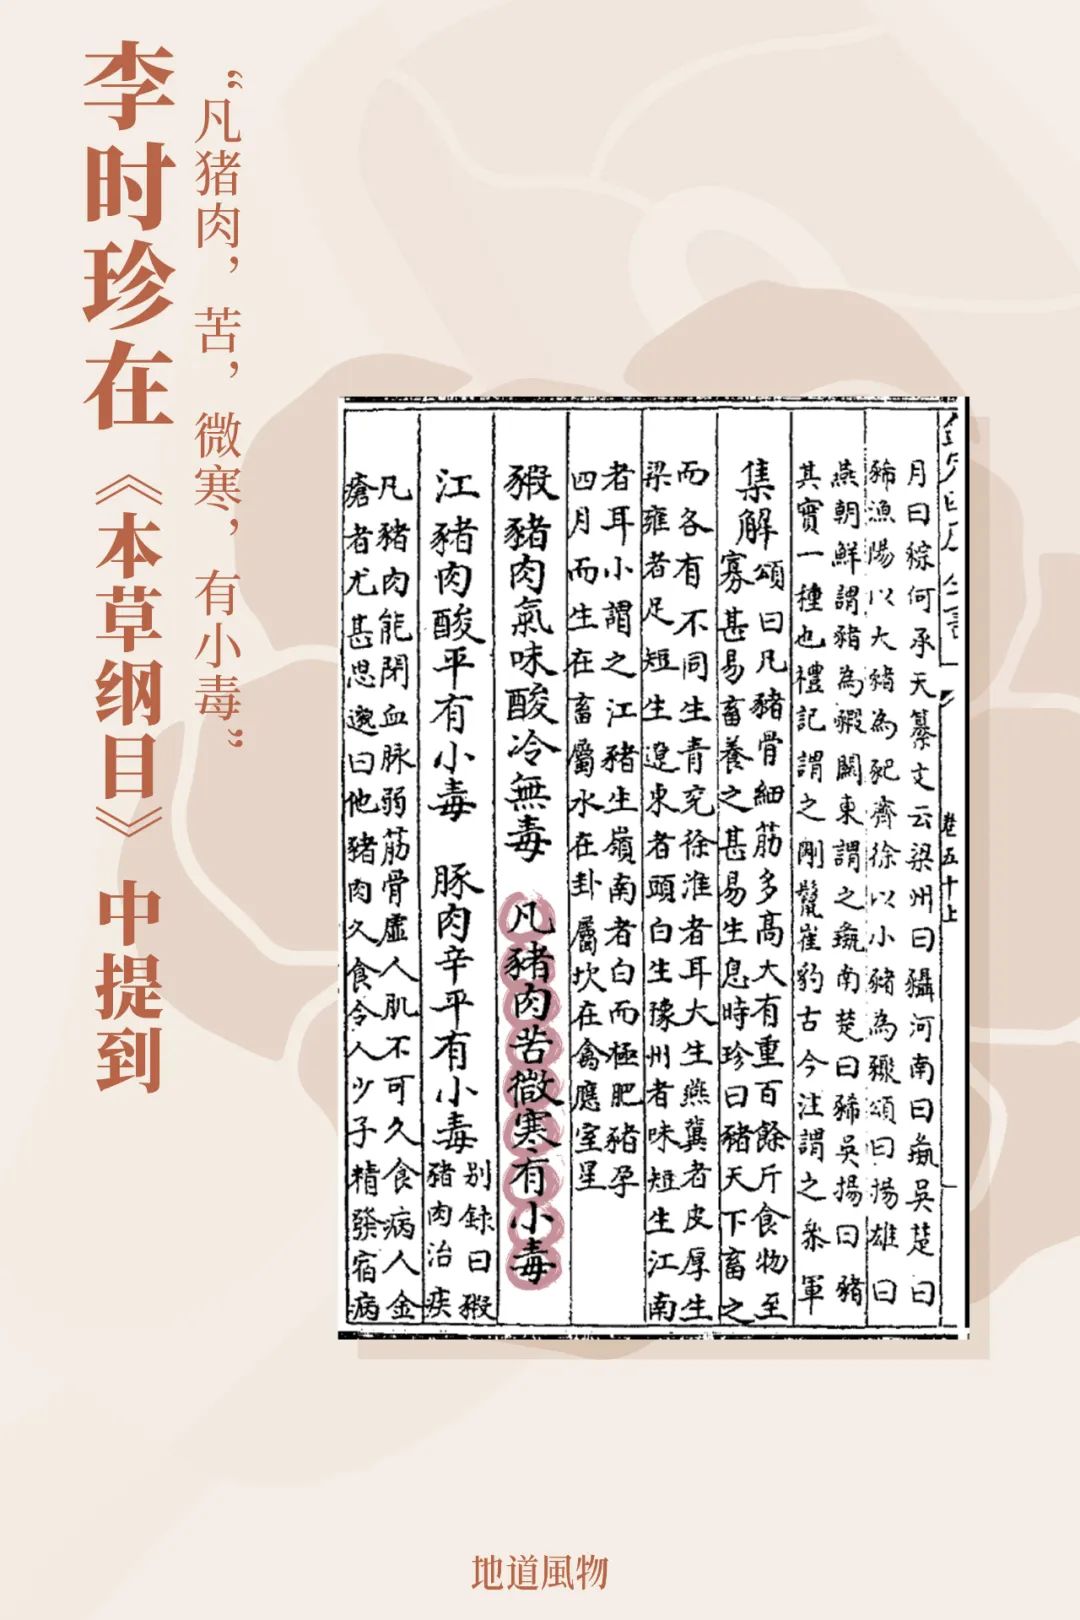 李时珍在《本草纲目》中提到
“凡猪肉，苦，微寒，有小毒”
卷五十上
月曰稌何承天纂文云梁州曰䝕河南曰彘吳楚曰
豨漁陽以大豬為豝齊徐以小豬為䝐頌曰揚雄曰
燕朝鮮謂豬為豭關東謂之彘南楚曰豨吳揚曰豬
其實一種也禮記謂之剛鬣崔豹古今注謂之叅軍
集解頌曰凡豬骨細筋多髙大有重百餘斤食物至
寡甚易畜養之甚易生息時珍曰豬天下畜之
而各有不同生青兖徐淮者耳大生燕冀者皮厚生
梁雍者足短生遼東者頭白生豫州者味短生江南
者耳小謂之江豬生嶺南者白而極肥豬孕
四月而生在畜屬水在卦屬坎在禽應室星
豭豬肉氣味酸冷無毒 凡豬肉苦微寒有小毒
江豬肉酸平有小毒 豚肉辛平有小毒
别録曰豭
豬肉治疾
凡豬肉能閉血脉弱筋骨虛人肌不可久食病人金
瘡者尤甚思邈曰他豬肉久食令人少子精發宿病
地道風物